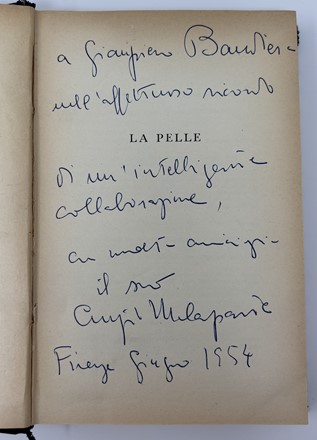 a Gianpiero Bandier
nell'affettuoso ricordo
LA PELLE
di un'intelligente
collaborazione,
con molta amicizia
il suo
Curzio Malaparte
Firenze Giugno 1954